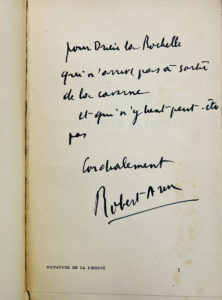 pour Drieu la Rochelle
qui n'arrive pas à sortir
de la caverne
et qui n'y tient peut-être
pas
Cordialement
Robert Aron
DICTATURE DE LA LIBERTÉ
1